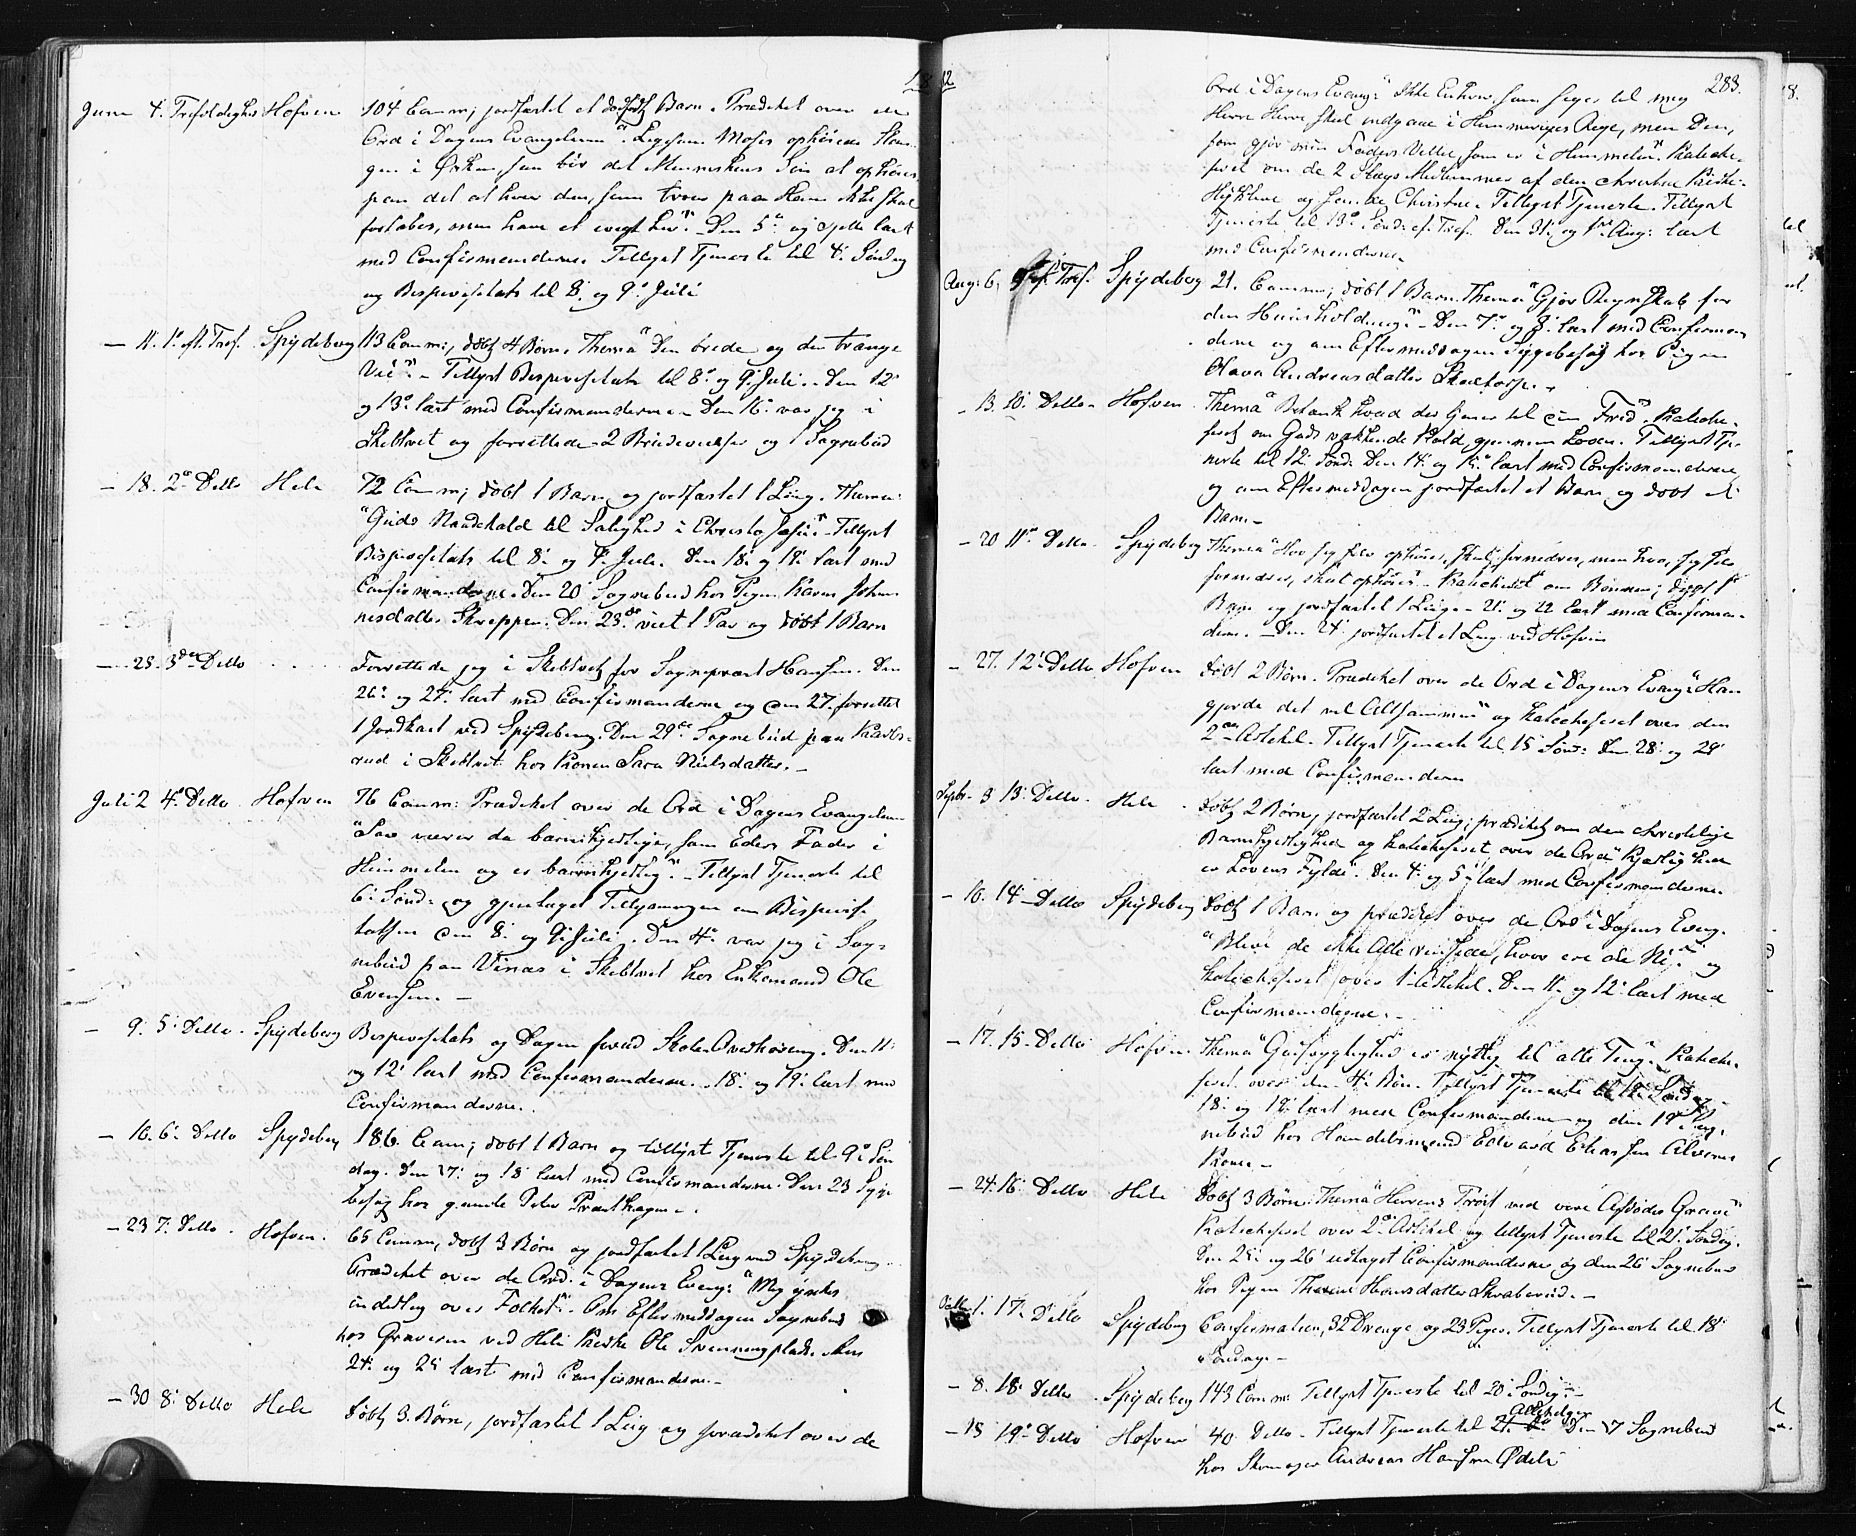 18
Juni 4. Trefoldighed Hofven 104 Comm; jordfæstet et dødfødt Barn. Prædiket over de
Ord i Dagens Evangelium "Ligesom Moses ophøiede Slan-
gen i Ørken, saa bør det Menneskens Søn at ophøies
paa det at hver den, som troer paa Ham ikke skal
fortabes, men have et evigt Liv". Den 5te og 6te læst
med Confirmanderne. Tillyst Tjeneste til 4. Søndag
og Bispevisitats til 8. og 9. Juli
— 11. 1. eft. Tref. Spydeberg 113 Comm; døbt 4 Børn. Thema "Den brede og den trange
Vei". – Tillyst Bispevisitats til 8. og 9. Juli. Den 12
og 13. læst med Confirmanderne. Den 16. var jeg i
Skibtvet og forrettede 2 Brudevielser og 1 Sognebud
— 18. 2. Detto Heli 72 Comm; døbt 1 Barn og jordfæstet 1 Liig. Thema:
"Guds Naadekald til Salighed i Christo Jesu". Tillyst
Bispevisitats til 8. og 9. Juli. Den 18. og 19. læst med
Confirmanderne. Den 20 Sognebud hos Pigen Karen Johan-
nesdatter Skreppen. Den 23de viet 1 Par og døbt 1 Barn
— 25. 3die Detto Forrettede jeg i Skibtvet for Sognepræst Hansen. Den
26. og 27. læst med Confirmanderne og den 27. forrettet
1 Jordkast ved Spydeberg. Den 29de Sognebud paa
rud i Skibtvet hos Konen Sara Nielsdatter. –
Juli 2 4. Detto Hofven 76 Comm: Prædiket over de Ord i Dagens Evangelium
"Saa værer da barmhjertige, som Eders Fader i
Himmelen og er barmhjertig". – Tillyst Tjeneste til
6. Sønd. og gjentaget Tillysningen om Bispevisi-
tatsen den 8. og 9. Juli. Den 4. var jeg i Sog-
nebud paa Vinas i Skibtvet hos Enkemand Ole
Evensen. –
— 9. 5. Detto. Spydeberg Bispevisitats og Dagen forud Skole Overhøring. Den 11.
og 12. læst med Confirmanderne. 18. og 19. læst med
Confirmanderne.
— 16. 6. Detto Spydeberg 186 Comm; døbt 1 Barn og tillyst Tjeneste til 9. Søn
dag. Den 17. og 18 læst med Confirmanderne. Den 23 Syge
besøg hos gamle Peder Præsthagen.
— 23 7. Detto. Hofven. 65 Comm, døbt 3 Børn og jordfæstet 1 Liig ved Spydeberg.
Prædiket over de Ord i Dagens Evang: "Mig ynkes
inderlig over Folket". Om Eftermiddagen Sognebud
hos Graveren ved Heli Kirke Ole Svenningplads. Den
24. og 25 læst med Confirmanderne. –
— 30 8. Detto Heli Døbt 3 Børn, jordfæstet 1 Liig og prædiket over de
82
283.
Ord i Dagens Evang: "Ikke Enhver, som siger til mig
Herre Herre skal indgaae i Himmeriges Rige, men Den,
som gjør min Faders Villie, som er i Himmelen". Kateche-
seret om de 2 Slags Medlemmer af den christne Kirke:
Hyklere og sande Christne. Tillyst Tjeneste. Tillyst
Tjeneste til 13. Sønd. ef. Tref. Den 31. og 1ste Aug: læst
med Confirmanderne.
Aug: 6. 9. ef. Tref. Spydeberg 21. Comm; døbt 1 Barn. Thema "Gjør Regnskab for
din Huusholdning". – Den 7. og 8. læst med Confirman
derne og om Eftermiddagen Sygebesøg hos Pigen
Olava Andreasdatter Skaltorp.
— 13. 10. Detto. Hofven Thema "Betænk hvad der tjener til din Fred". Kateche-
seret om Guds vækkende Kald gjennem Loven. Tillyst Tje-
neste til 12. Sønd. Den 14. og 15. læst med Confirmanderne
og om Eftermiddagen jordfæstet et Barn og døbt et
Barn. –
— 20 11te Detto. Spydeberg Thema "Hvo sig selv ophøier, skal fornedres, men hvo, sig selv
fornedrer, skal ophøies". Katechiseret om Bønnen; døbt 1
Barn og jordfæstet 1 Liig. – 21. og 22 læst med Confirman-
derne. – Den 24. jordfæstet et Liig ved Hofven
— 27. 12. Detto Hofven Døbt 2 Børn. Prædiket over de Ord i Dagens Evang: "Han
gjorde det vel Altsammen" og katecheseret over den
2den Artikel. Tillyst Tjeneste til 15 Sønd: Den 28. og 29
læst med Confirmanderne
Septbr. 3 13. Detto. Heli Døbt 2 Børn, jordfæstet 2 Liig; prædiket om den christelige
Barmhjertighed og katecheseret over de Ord "Kjærlighed
er Lovens Fylde". Den 4. og 5. læst med Confirmanderne
— 10. 14. Detto Spydeberg Døbt 1 Barn og prædiket over de Ord i Dagens Evang.
"Bleve de ikke Alle rensede, hvor ere de Ni" og
katecheseret over 1. Artikel. Den 11. og 12. læst med
Confirmanderne. –
— 17. 15. Detto Hofven Thema "Gudfrygtighed er nyttig til alle Ting". Kateche-
seret over den 4. Bøn. Tillyst Tjeneste til 19. Søndag –
18. og 19. læst med Confirmanderne og den 19. Sog-
nebud hos Handelsmand Edvard Eliassen Alvernes
Kone. –
— 24. 16. Detto Heli Døbt 3 Børn. Thema "Herrens Trøst ved vore Afdødes Grave"
Katecheseret over 2den Artikel og tillyst Tjeneste til 21. Søndag.
Den 25. og 26. udtaget Confirmanderne og den 26 Sognebud
hos Pigen Hansdatter Skraberud. –
Octbr. 1. 17. Detto Spydeberg Confirmation, 32 Drenge og 23 Piger. Tillyst Tjeneste til 18.
Søndag. –
— 8. 18. Detto. Spydeberg 143 Comm: Tillyst Tjeneste til 20. Søndag. –
Allehelgen
— 15 19. Detto Hofven 40 Detto – Tillyst Tjeneste til 21. Den 17 Sognebud
hos Skomager Andreas Hansen Ødeli